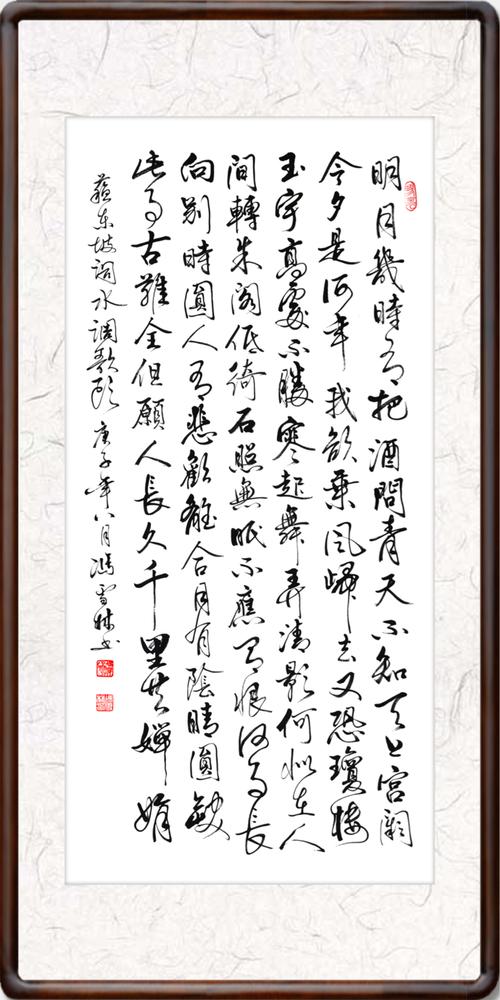 明月幾時有把酒問青天不知天上宮闕
今夕是何年我欲乘風歸去又恐瓊樓
玉宇高處不勝寒起舞弄清影何似在人
間轉朱閣低綺戶照無眠不應有恨何事長
向別時圓人有悲歡離合月有陰晴圓缺
此事古難全但願人長久千里共嬋娟
蘇東坡詞水調歌頭 庚子年八月馮雪林书